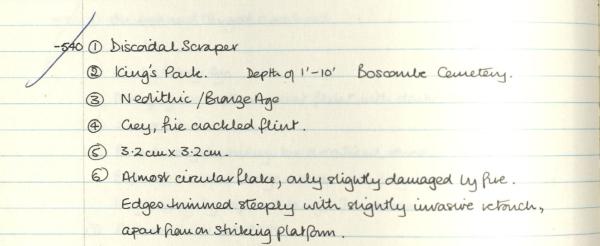 -540 ① Discoidal Scraper
② King's Park. Depth of 1'-10' Boscombe Cemetery.
③ Neolithic / Bronze Age
④ Grey, fire crackled flint.
⑤ 3.2cm x 3.2cm.
⑥ Almost circular flake, only slightly damaged by fire.
Edges trimmed steeply with slightly invasive retouch,
apart from on striking platform.